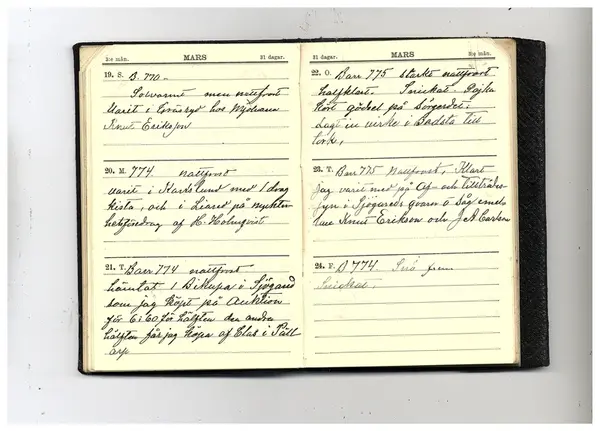 3:e mån. MARS 31 dagar.
19. S. B. 770.
Solvarmt men nattfrost
Varit i hos
Knut Eriksson
20. M. 774 nattfrost
varit i med 1 drag
kista, och i på nykter
hetsföredrag af H. Holmqvist
21. T. Barr 774 nattfrost
hämtat 1 Bikupa i Sjögared
som jag köpt på Auktion
för 6:60 för hälften den andra
hälften får jag köpa af Claes i Påll
arp
31 dagar. MARS 3:e mån.
22. O. Barr 775 starkt nattfrost
halfklart. Snickat.
Kört gödsel på Sörgerdet.
Lagt in virke i Badstu till
tork,
23. T. Barr 775 nattfrost, Klart
jag varit med på Af- och tillträdes
syn i Sjögareds qvarn o Såg emel
lan Knut Erikson och J. A. Carlson
24. F. B 774. Snö
Snickat,